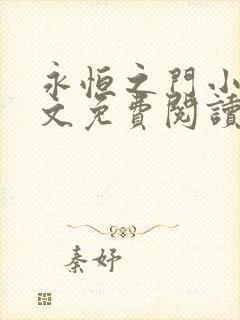 永恒之門小
文免費閱讀
秦妤